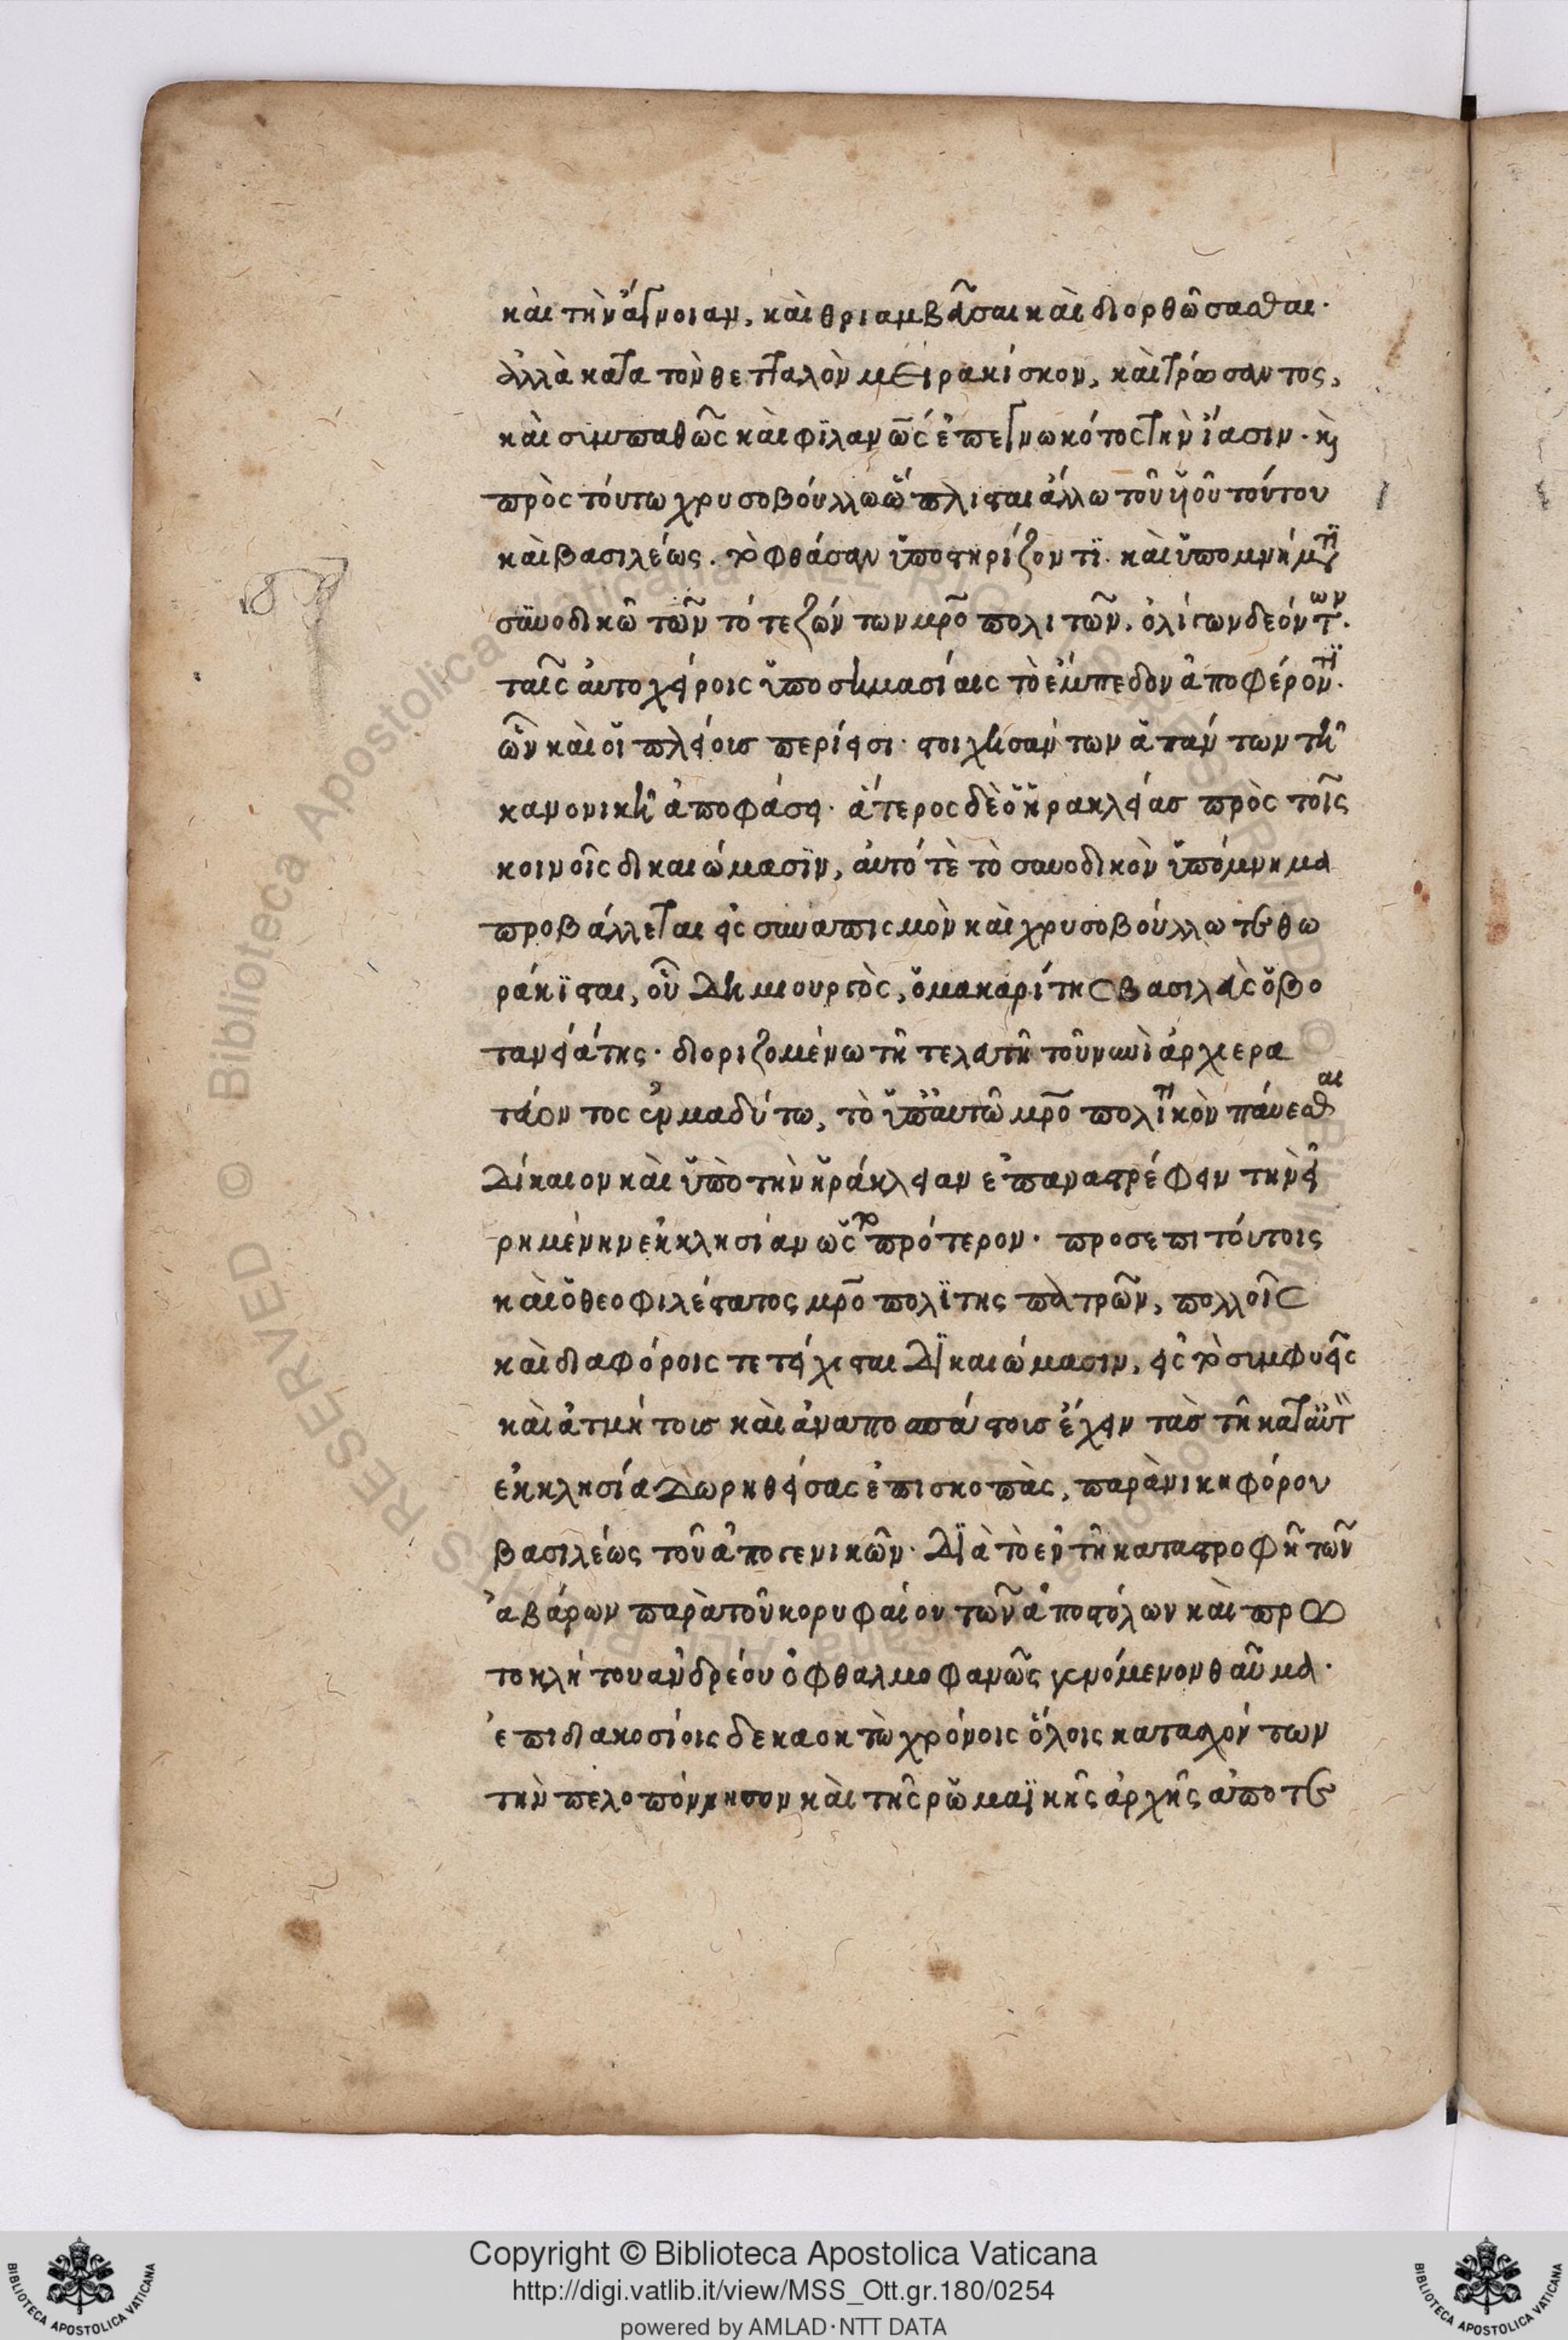 καὶ τὴν ἄγνοιαν, καὶ θριαμβεῦσαι καὶ διορθῶσασθαι·
ἀλλὰ κατα τὸν θετταλὸν μειρακίσκον, καὶ τρώσαντος,
καὶ συμπαθῶς καὶ φϊλανῶς ἐπεγνωκότος τὴν ἴασιν. κὶ
πρὸς τούτω χρυσοβούλλω ὥπλισται ἄλλω τοῦ ὑοῦ τούτου
καὶ βασιλέως. τὸ φθάσαν ὑποστηρίζοντϊ. καὶ ὑπομνήμτι
συνοδικῶ τῶν τότε ζώντων μρο πολιτῶν. ὀλίγων δεόντων.
ταῖς αὐτοχείροις ὑποσημασίαις τὸ ἔμπεδον ἀποφέροντϊ.
ὧν καὶ οἱ πλείοις περίεισι· στοιχησάντων ἁπάντων τῆ
κανονικῆ ἀποφάσει· ἅτερος δὲ ὁ ἡρακλείας πρὸς τοῖς
κοινοῖς δικαιώμασϊν, αὐτό τὲ τὸ συνοδικὸν ὑπόμνημα
προβάλλεται εἰς συνασπισμὸν καὶ χρυσοβούλλω τεθω
ράκϊσται, οὗ δημιουργὸς, ὁ μακαρίτης βασιλεὺς ὁ βο
τανειάτης· διοριζομένω τῆ τελευτῆ τοῦ νυνὶ ἀρχιερα
τεύοντος ἐν μαδύτω, τὸ ὑπ᾽ αὐτῶ μρο πολιτικὸν παύεσθαι
δίκαιον καὶ ὑπὸ τὴν ἡράκλειαν ἐπαναστρέφειν τὴν εἰ
ρημένην ἐκκλησίαν ὡς τὸ πρότερον· προσεπιτούτοις
καὶ ὁ θεοφιλέστατος μρο πολϊτης πατρῶν, πολλοῖς
καὶ διαφόροις τετείχισται δϊκαιώμασιν, εἰς τὸ συμφυεῖς
καὶ ἀτμήτοις καὶ ἀναποσπάστοις ἔχειν τὰς τῆ κατ αὐτ
ἐκκλησία δωρηθείσας ἐπισκοπὰς, παρὰ νικηφόρου
βασιλέως τοῦ ἀπο γενικῶν· δϊὰ τὸ ἐν τῆ καταστροφῆ τῶν
ἀβάρων παρὰ τοῦ κορυφαίου τῶν ἀποστόλων καὶ πρω
τοκλήτου ἀνδρέου ὀφθαλμοφανῶς γενόμενον θαῦμα·
ἐπι διακοσίοις δεκαοκτὼ χρόνοις ὅλοις κατασχόντων
τὴν πελοπόννησον καὶ τῆς ρωμαϊκῆς ἀρχῆς ἀποτε
Copyright © Biblioteca Apostolica Vaticana
http://digi.vatlib.it/view/MSS_Ott.gr.180/0254
powered by AMLAD·NTT DATA